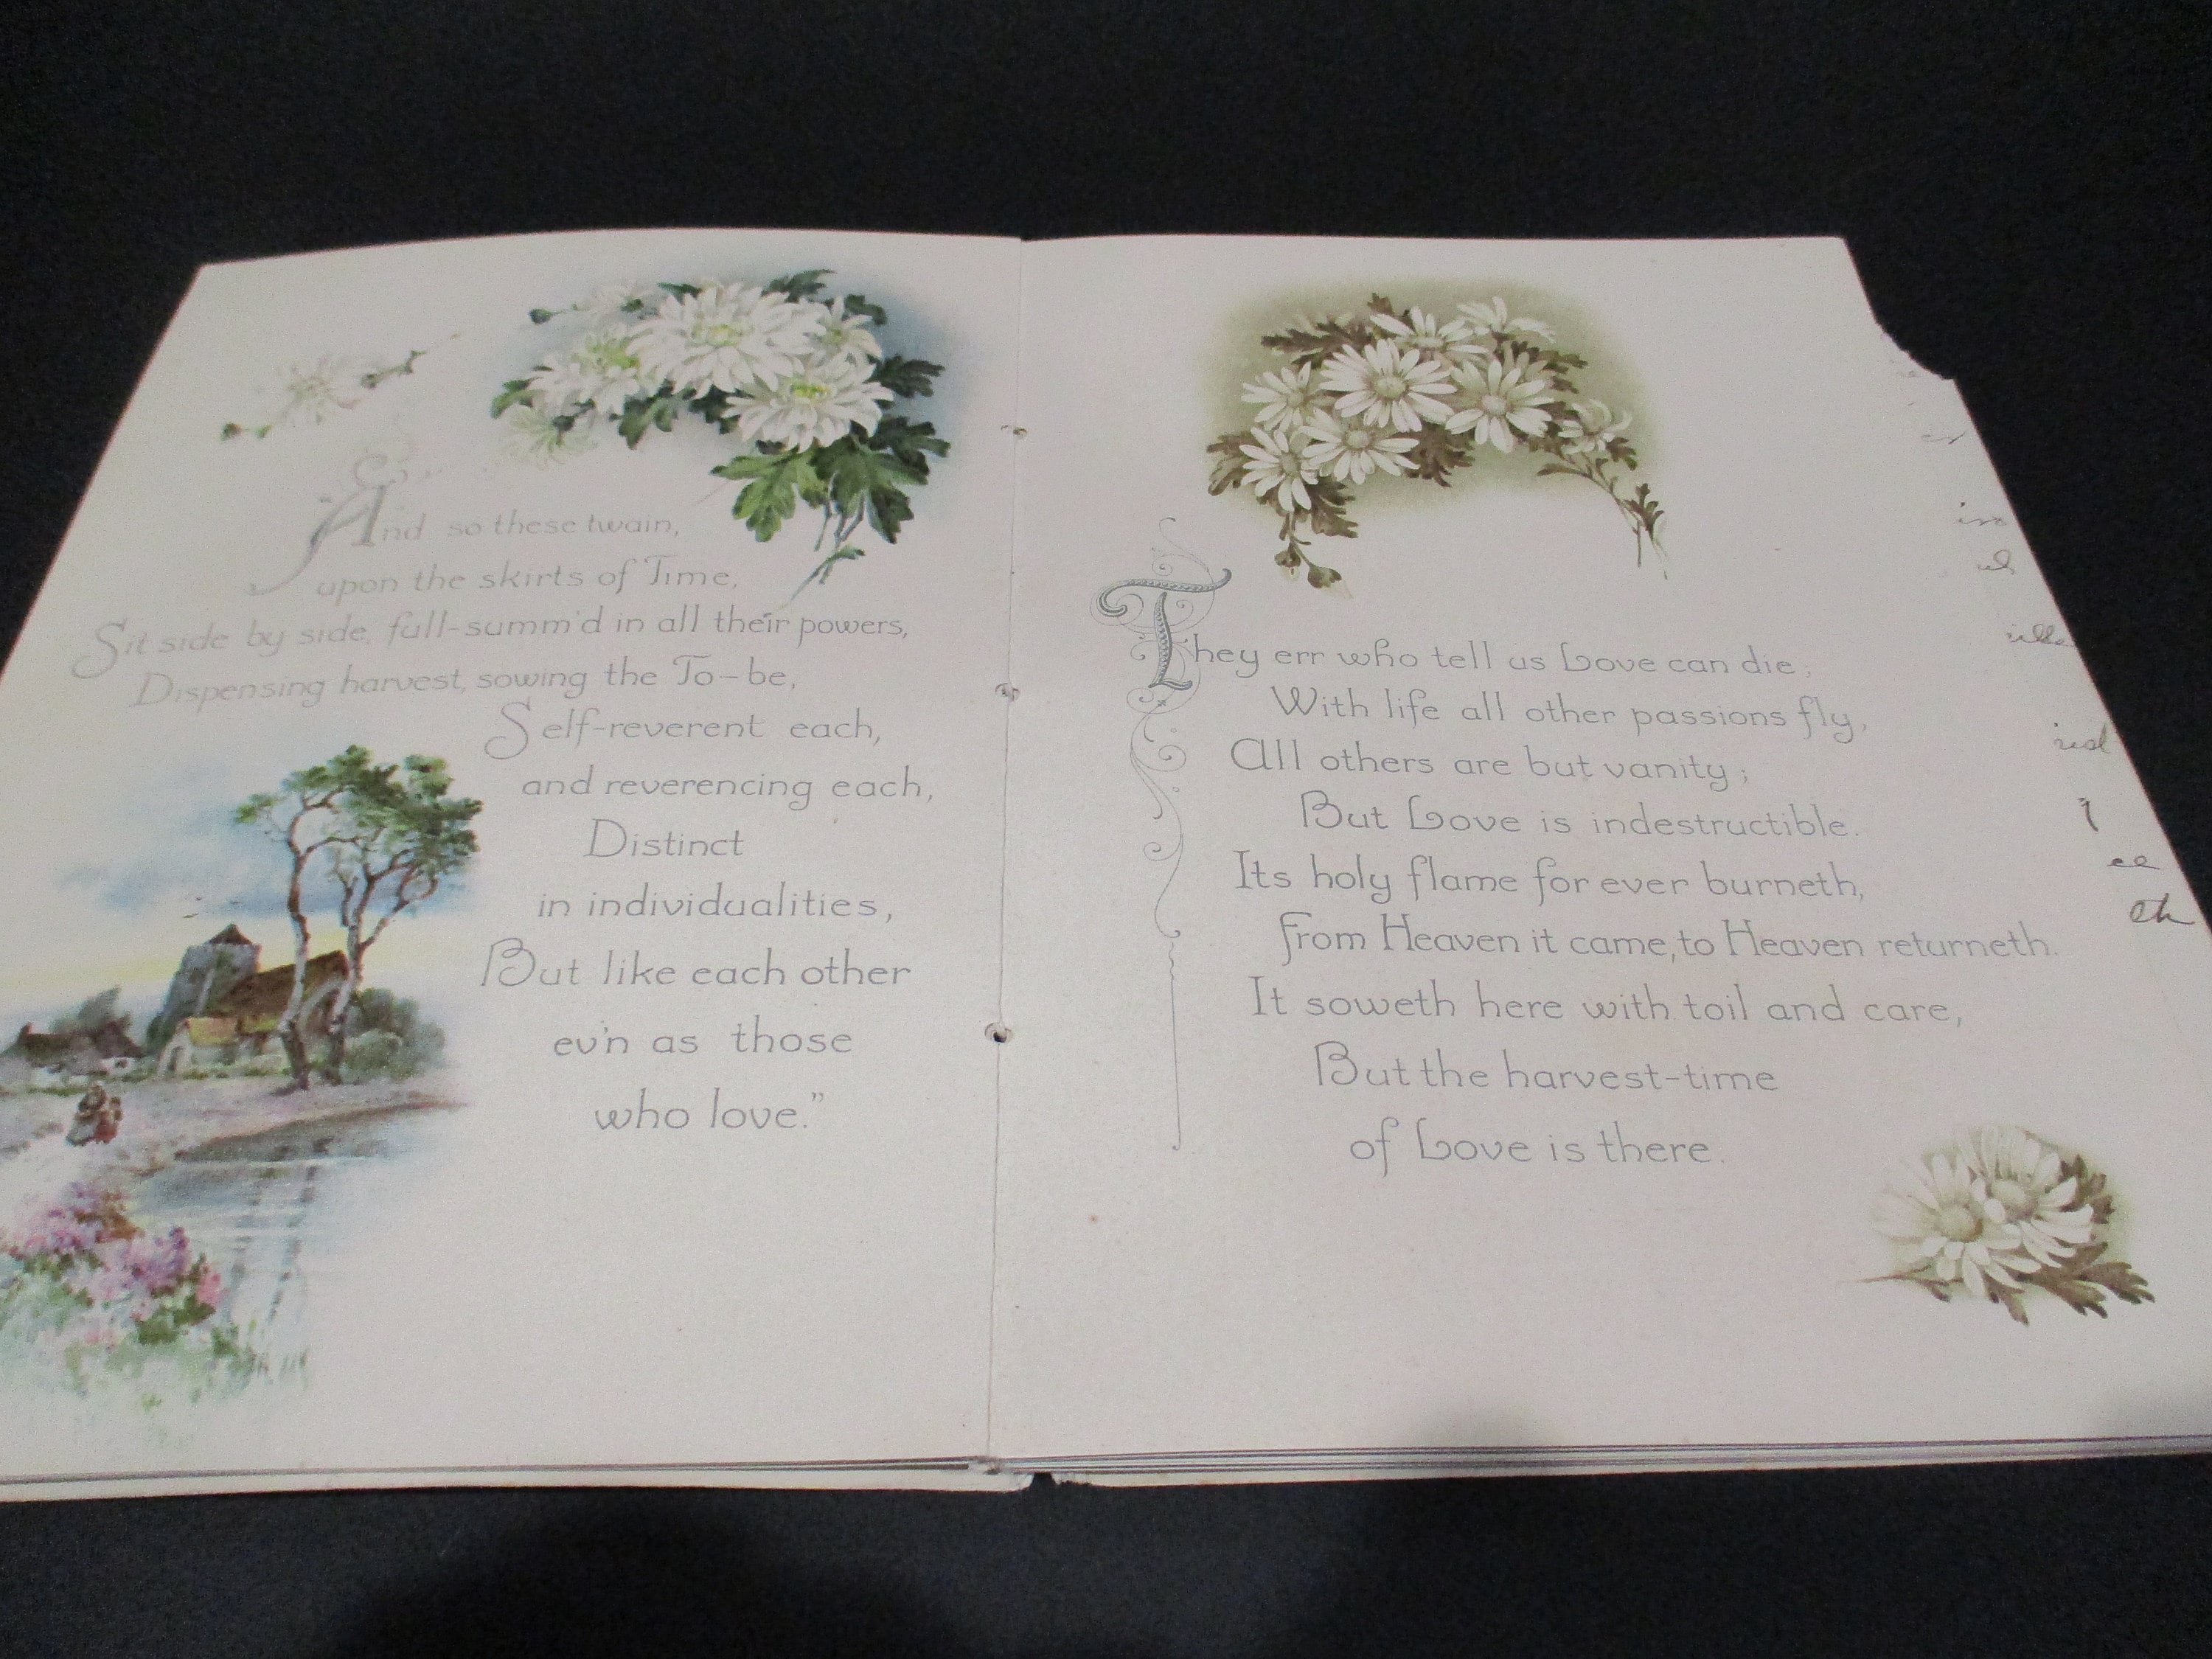 And so these twain,
upon the skirts of Time,
Sit side by side, full-summ'd in all their powers,
Dispensing harvest, sowing the To-be,
Self-reverent each,
and reverencing each,
Distinct
in individualities,
But like each other
ev'n as those
who love."
They err who tell us Love can die;
With life all other passions fly,
All others are but vanity;
But Love is indestructible.
Its holy flame for ever burneth,
From Heaven it came, to Heaven returneth.
It soweth here with toil and care,
But the harvest-time
of Love is there.